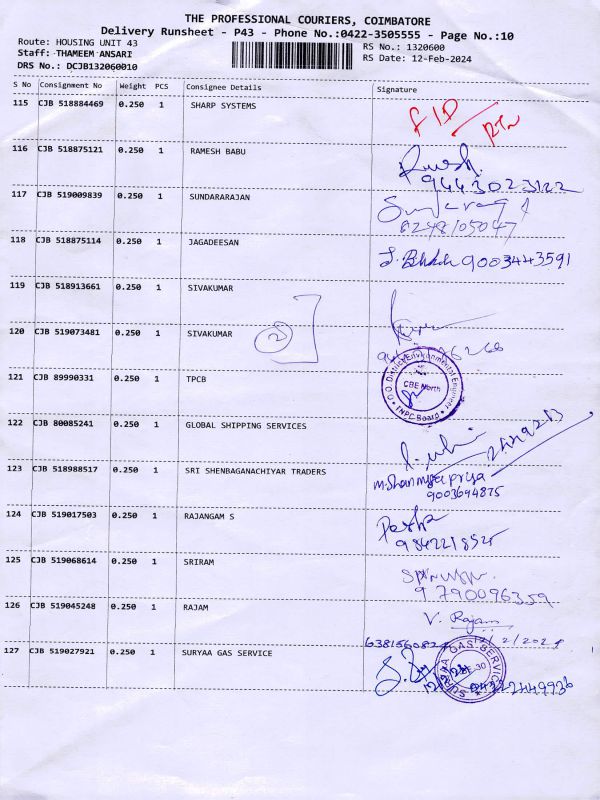 THE PROFESSIONAL COURIERS, COIMBATORE
Delivery Runsheet - P43 - Phone No.:0422-3505555 - Page No.:10
Route: HOUSING UNIT 43
RS No.: 1320600
Staff: THAMEEM ANSARI
RS Date: 12-Feb-2024
DRS No.: DCJB132060010
S No Consignment No Weight PCS Consignee Details Signature
115 CJB 518884469 0.250 1 SHARP SYSTEMS
116 CJB 518875121 0.250 1 RAMESH BABU
9443023122
117 CJB 519009839 0.250 1 SUNDARARAJAN
6248105047
118 CJB 518875114 0.250 1 JAGADEESAN 9003443591
119 CJB 518913661 0.250 1 SIVAKUMAR
120 CJB 519073481 0.250 1 SIVAKUMAR 2
121 CJB 89990331 0.250 1 TPCB
O/O District Environmental Engineer
CBE North
TNPC Board
122 CJB 80085241 0.250 1 GLOBAL SHIPPING SERVICES
123 CJB 518988517 0.250 1 SRI SHENBAGANACHIYAR TRADERS
9003694875
124 CJB 519017503 0.250 1 RAJANGAM S
125 CJB 519068614 0.250 1 SRIRAM
9790096359
126 CJB 519045248 0.250 1 RAJAM V. Rajam
12/2/2024
127 CJB 519027921 0.250 1 SURYAA GAS SERVICE
SURYAA GAS SERVICE